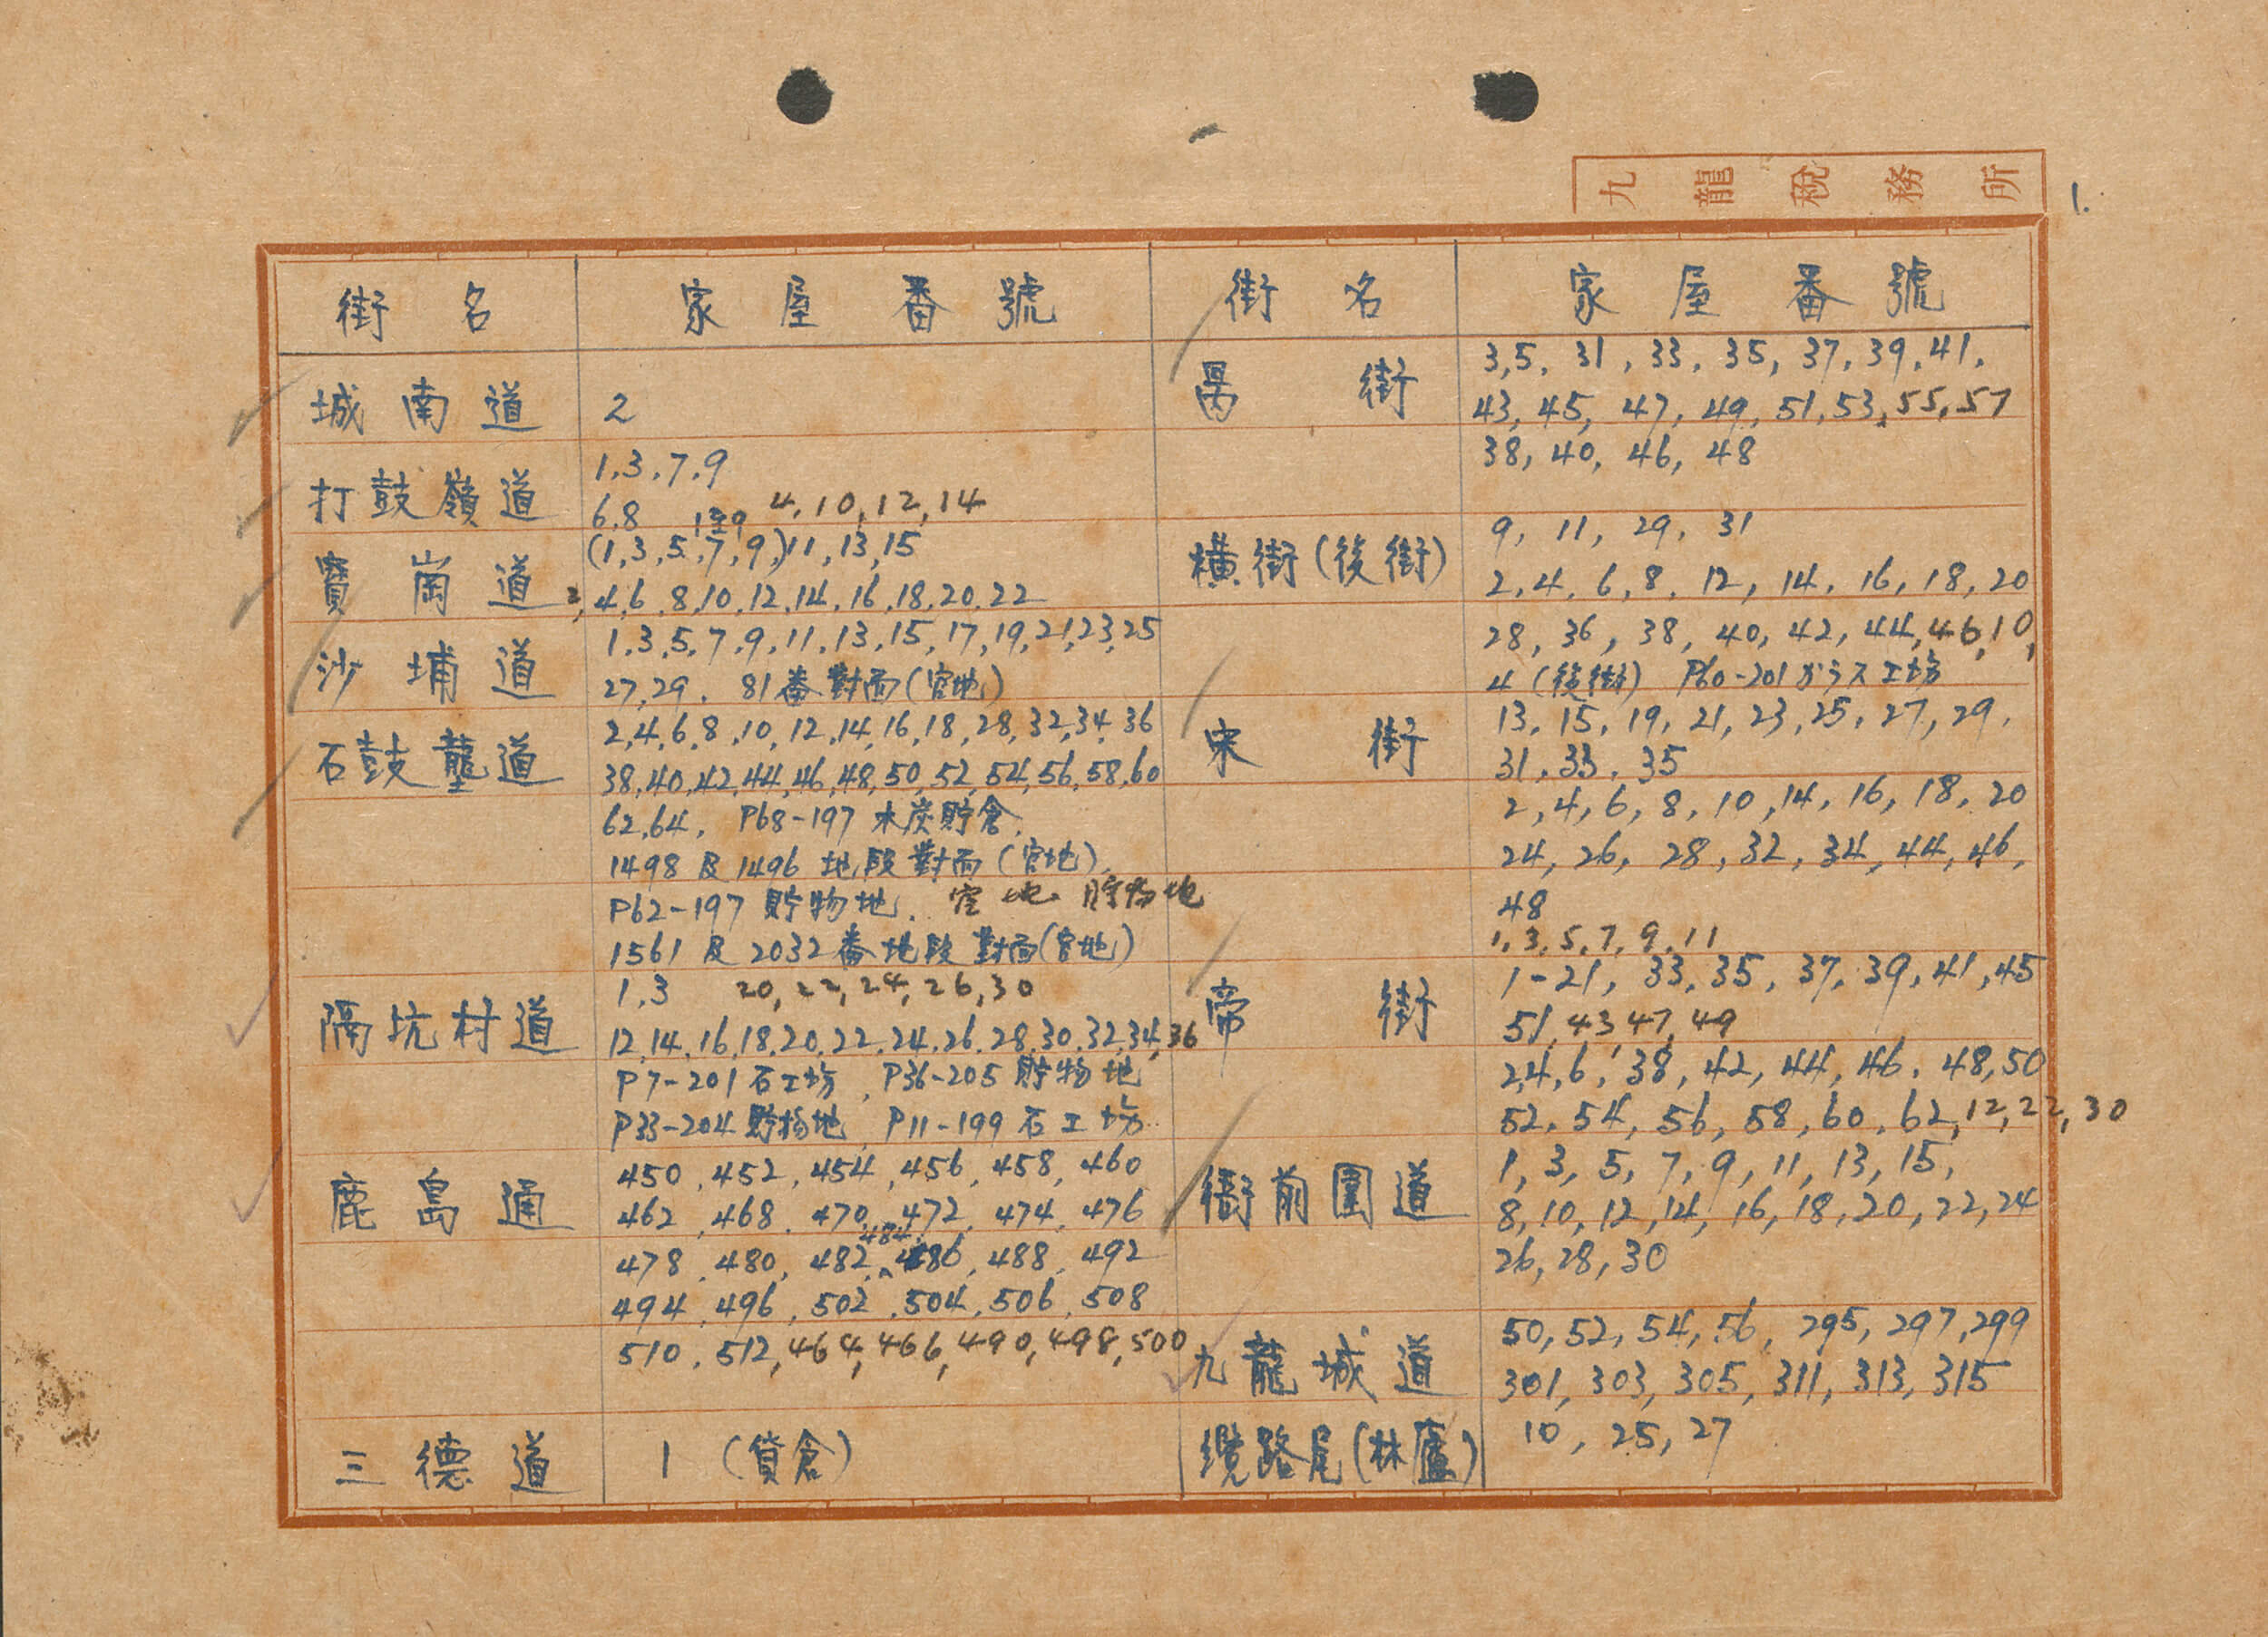 九龍稅務所
1.
街名 家屋番號
城南道 2
打鼓嶺道 1.3.7.9
6.8 4,10,12,14
1至9
賓崗道 (1,3,5,7,9,)11,13,15
2,4,6,8,10,12,14,16,18,20,22
沙埔道 1.3.5.7.9.11.13.15,17,19,21,23,25
27,29. 81番對面(官地)
石鼓壟道 2,4,6,8,10,12,14,16,18,28,32,34,36
38,40,42,44,46,48,50,52,54,56,58,60
62,64, P68-197 木炭貯倉,
1498及1496 地段對面(官地),
P62-197 貯物地. 官地 貯物地
1561及2032番地段對面(官地)
隔坑村道 1,3 20,22,24,26,30
12,14,16,18,20,22,24,26,28,30,32,34,36
P7-201石工坊, P36-205貯物地
P33-204貯物地, P11-199石工坊
鹿島通 450,452,454,456,458,460
462,468,470,472,474,476
484
478,480,482,486,488,492
494,496,502,504,506,508
510,512,464,466,490,498,500
三德道 1 (貨倉)
街名 家屋番號
街 3,5,31,33,35,37,39,41,
43,45,47,49,51,53,55,57
38,40,46,48
橫街(後街) 9,11,29,31
2,4,6,8,12,14,16,18,20
28,36,38,40,42,44,46,10,
4(後街) P60-201ガラス工坊
宋街 13,15,19,21,23,25,27,29,
31,33,35
2,4,6,8,10,14,16,18,20
24,26,28,32,34,44,46,
48
1,3,5,7,9,11
帝街 1-21,33,35,37,39,41,45
51,43,47,49
2,4,6,38,42,44,46,48,50
52,54,56,58,60,62,12,22,30
衙前圍道 1,3,5,7,9,11,13,15,
8,10,12,14,16,18,20,22,24
26,28,30
九龍城道 50,52,54,56,295,297,299
301,303,305,311,313,315
纜路尾(林廬) 10,25,27